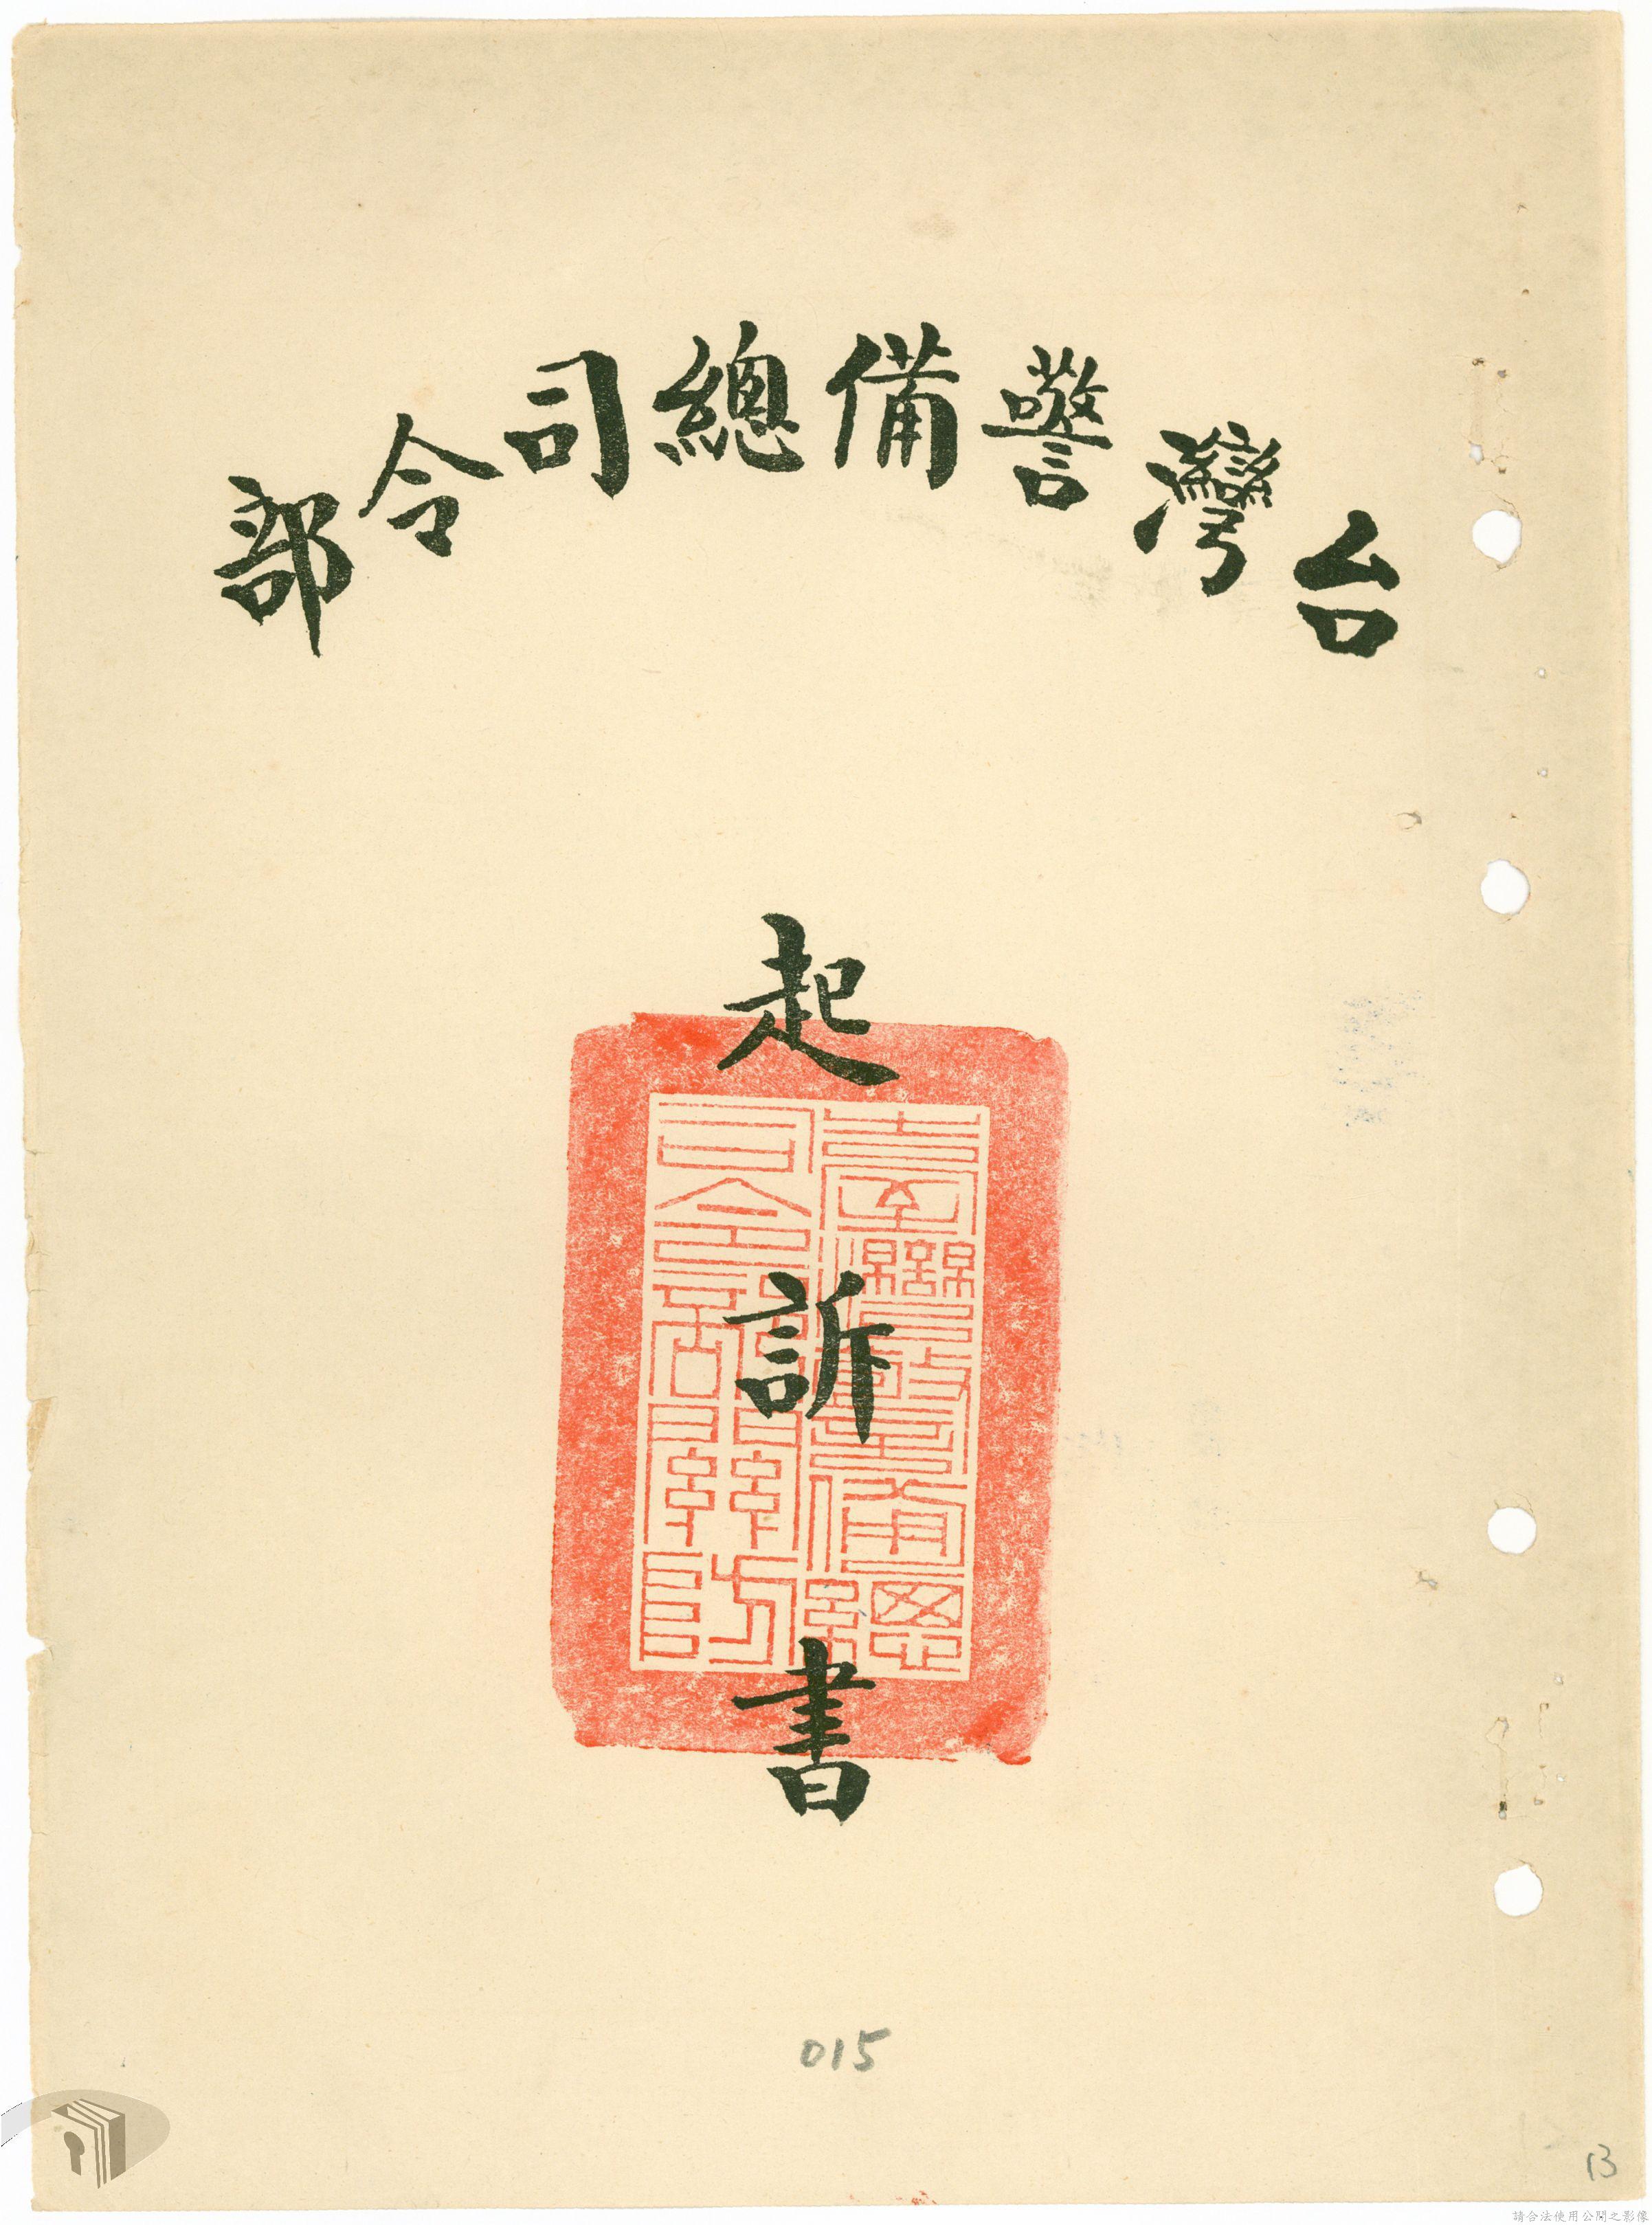 台灣警備總司令部
起訴書
臺灣警備總
司令部關防
015
13
請合法使用公開之影像